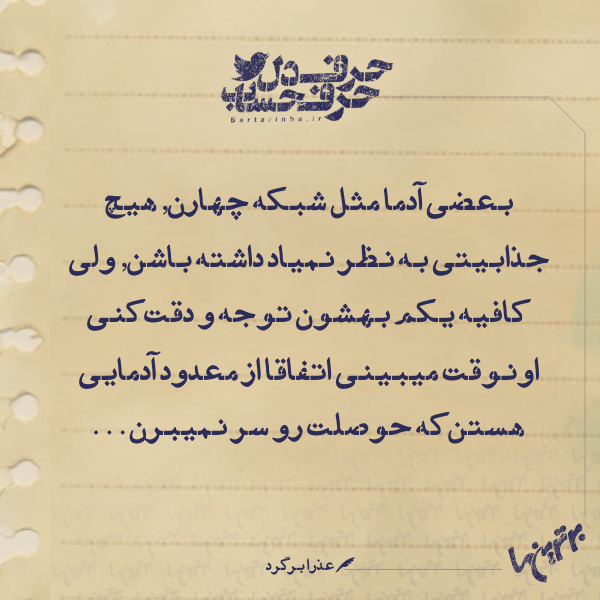 حرف دل
حرف حساب
Bartarinha.ir
بعضی آدما مثل شبکه چهارن, هیچ
جذابیتی به نظر نمیاد داشته باشن, ولی
کافیه یکم بهشون توجه و دقت کنی
اونوقت میبینی اتفاقا از معدود آدمایی
هستن که حوصلت رو سر نمیبرن...
عذرا برگرد
برترینها